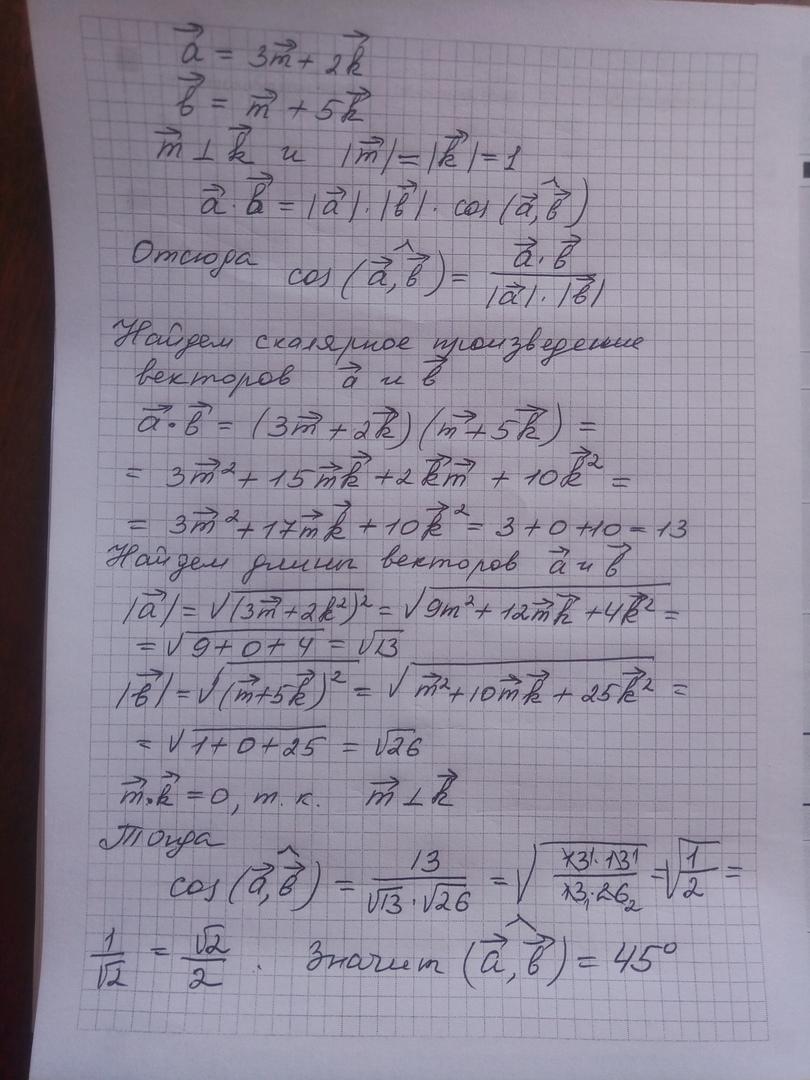 a⃗ = 3m⃗ + 2k⃗
b⃗ = m⃗ + 5k⃗
m⃗ ⊥ k⃗ и |m⃗| = |k⃗| = 1
a⃗ · b⃗ = |a⃗| · |b⃗| · cos (a⃗,^b⃗)
Отсюда cos (a⃗,^b⃗) = a⃗ · b⃗ / |a⃗| · |b⃗|
Найдем скалярное произведение
векторов a⃗ и b⃗
a⃗ · b⃗ = (3m⃗ + 2k⃗) (m⃗ + 5k⃗) =
= 3m⃗² + 15m⃗k⃗ + 2k⃗m⃗ + 10k⃗² =
= 3m⃗² + 17m⃗k⃗ + 10k⃗² = 3 + 0 + 10 = 13
Найдем длины векторов a⃗ и b⃗
|a⃗| = √(3m⃗ + 2k²)² = √9m² + 12m⃗k⃗ + 4k⃗² =
= √9 + 0 + 4 = √13
|b⃗| = √(m⃗ + 5k⃗)² = √m⃗² + 10m⃗k⃗ + 25k⃗² =
= √1 + 0 + 25 = √26
m⃗ · k⃗ = 0, т. к. m⃗ ⊥ k⃗
Тогда
cos (a⃗,^b⃗) = 13 / √13 · √26 = √13¹ · 13¹ / 13₁ · 26₂ = √1/2 =
1/√2 = √2/2 . Значит (a⃗,^b⃗) = 45°